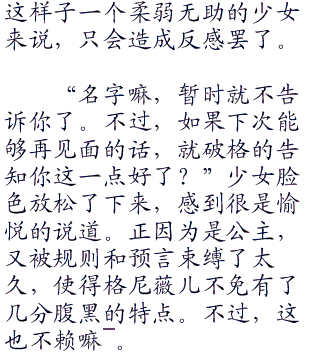 这样子一个柔弱无助的少女
来说，只会造成反感罢了。
“名字嘛，暂时就不告
诉你了。不过，如果下次能
够再见面的话，就破格的告
知你这一点好了？”少女脸
色放松了下来，感到很是愉
悦的说道。正因为是公主，
又被规则和预言束缚了太
久，使得格尼薇儿不免有了
几分腹黑的特点。不过，这
也不赖嘛¯。